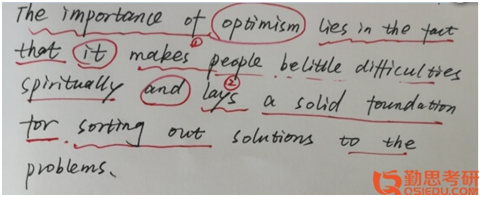 The importance of optimism lies in the fact
that it makes people belittle difficulties
①
spiritually and lays a solid foundation
②
for sorting out solutions to the
problems.
勤思考研
QSIEDU.COM